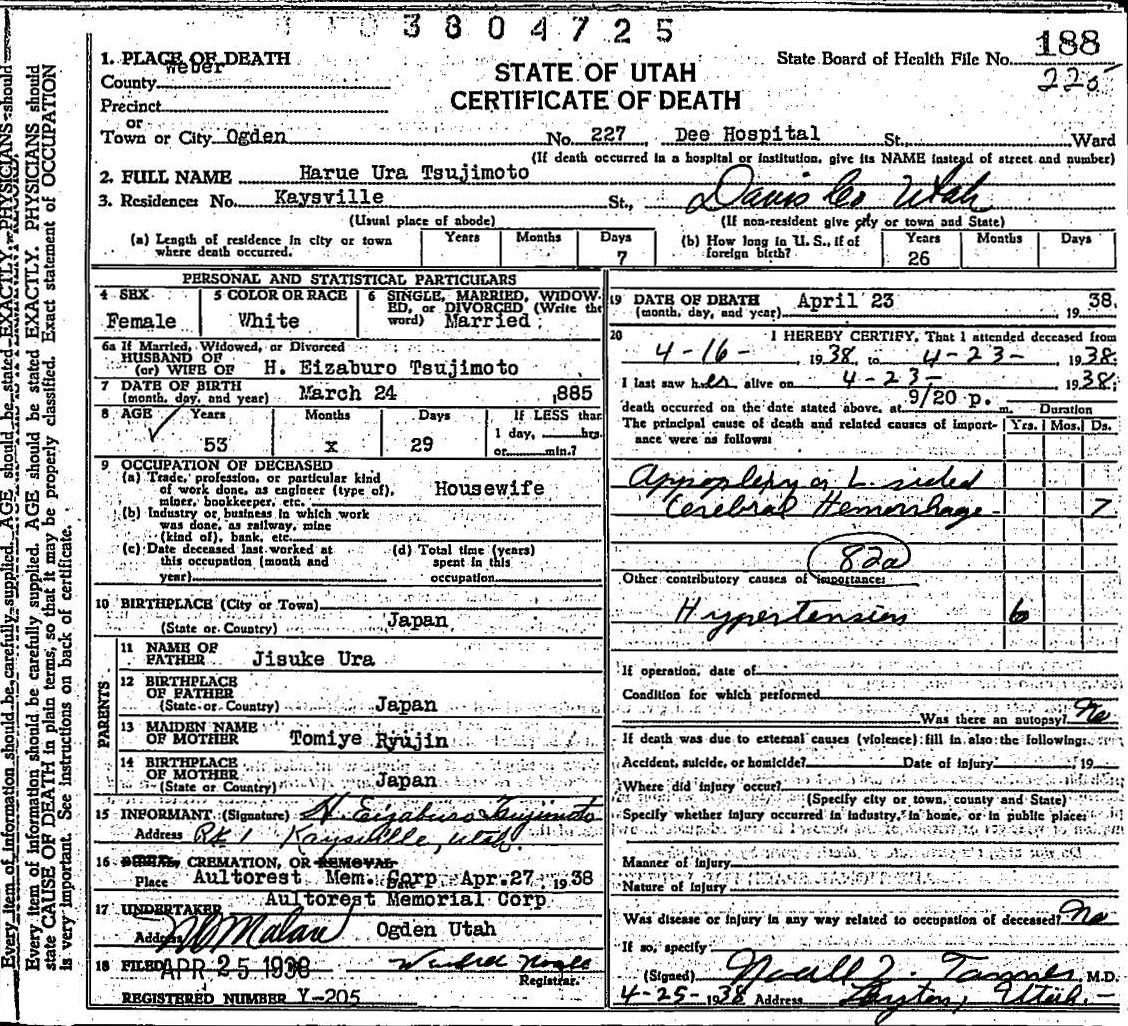 3804725
188
State Board of Health File No.
225
1. PLACE OF DEATH
County Weber
STATE OF UTAH
CERTIFICATE OF DEATH
Precinct
or
Town or City Ogden No. 227 Dee Hospital St., Ward
(If death occurred in a hospital or institution, give its NAME instead of street and number)
2. FULL NAME Harue Ura Tsujimoto
3. Residences No. Kaysville St., Davis Co Utah
(Usual place of abode) (If non-resident give city or town and State)
(a) Length of residence in city or town where death occurred. Years Months Days 7
(b) How long in U. S., if of foreign birth? Years 26 Months Days
PERSONAL AND STATISTICAL PARTICULARS
4 SEX Female
5 COLOR OR RACE White
6 SINGLE, MARRIED, WIDOWED, or DIVORCED (Write the word) Married
6a If Married, Widowed, or Divorced
HUSBAND OF
(or) WIFE OF H. Eizaburo Tsujimoto
7 DATE OF BIRTH
(month, day, and year) March 24 1885
8 AGE Years 53 Months x Days 29 If LESS than 1 day, hrs. or min.?
9 OCCUPATION OF DECEASED
(a) Trade, profession, or particular kind
of work done, as engineer (type of),
miner, bookkeeper, etc. Housewife
(b) Industry or business in which work
was done, as railway, mine
(kind of), bank, etc.
(c) Date deceased last worked at
this occupation (month and
year)
(d) Total time (years)
spent in this
occupation
10 BIRTHPLACE (City or Town)
(State or Country) Japan
PARENTS
11 NAME OF
FATHER Jisuke Ura
12 BIRTHPLACE
OF FATHER
(State or Country) Japan
13 MAIDEN NAME
OF MOTHER Tomiye Ryujin
14 BIRTHPLACE
OF MOTHER
(State or Country) Japan
15 INFORMANT (Signature) H. Eizaburo Tsujimoto
Address Rt. 1 Kaysville, Utah.
16 BURIAL, CREMATION, OR REMOVAL
Place Aultorest Mem. Corp Date Apr. 27, 1938
Aultorest Memorial Corp
17 UNDERTAKER
Address Malan Ogden Utah
18 FILED APR 25 1938
Registrar.
REGISTERED NUMBER Y-205
19 DATE OF DEATH April 23 1938.
(month, day, and year)
20 I HEREBY CERTIFY, That I attended deceased from
4-16- 1938, to 4-23- 1938.
I last saw her alive on 4-23- 1938.
death occurred on the date stated above, at 9/20 p. m.
Duration
The principal cause of death and related causes of importance were as follows: Yrs. Mos. Ds.
Appoplexy or L. sided
Cerebral Hemorrhage 7
82a
Other contributory causes of importance:
Hypertension 6
If operation, date of
Condition for which performed
Was there an autopsy? No
If death was due to external causes (violence) fill in also the following:
Accident, suicide, or homicide? Date of injury 19
Where did injury occur?
(Specify city or town, county and State)
Specify whether injury occurred in industry, in home, or in public place:
Manner of injury
Nature of injury
Was disease or injury in any way related to occupation of deceased? No
If so, specify
(Signed) Noall Z. Tanner M.D.
4-25-1938 Address Layton, Utah.
Every item of information should be carefully supplied. AGE should be stated EXACTLY. PHYSICIANS should
state CAUSE OF DEATH in plain terms, so that it may be properly classified. Exact statement of OCCUPATION
is very important. See instructions on back of certificate.